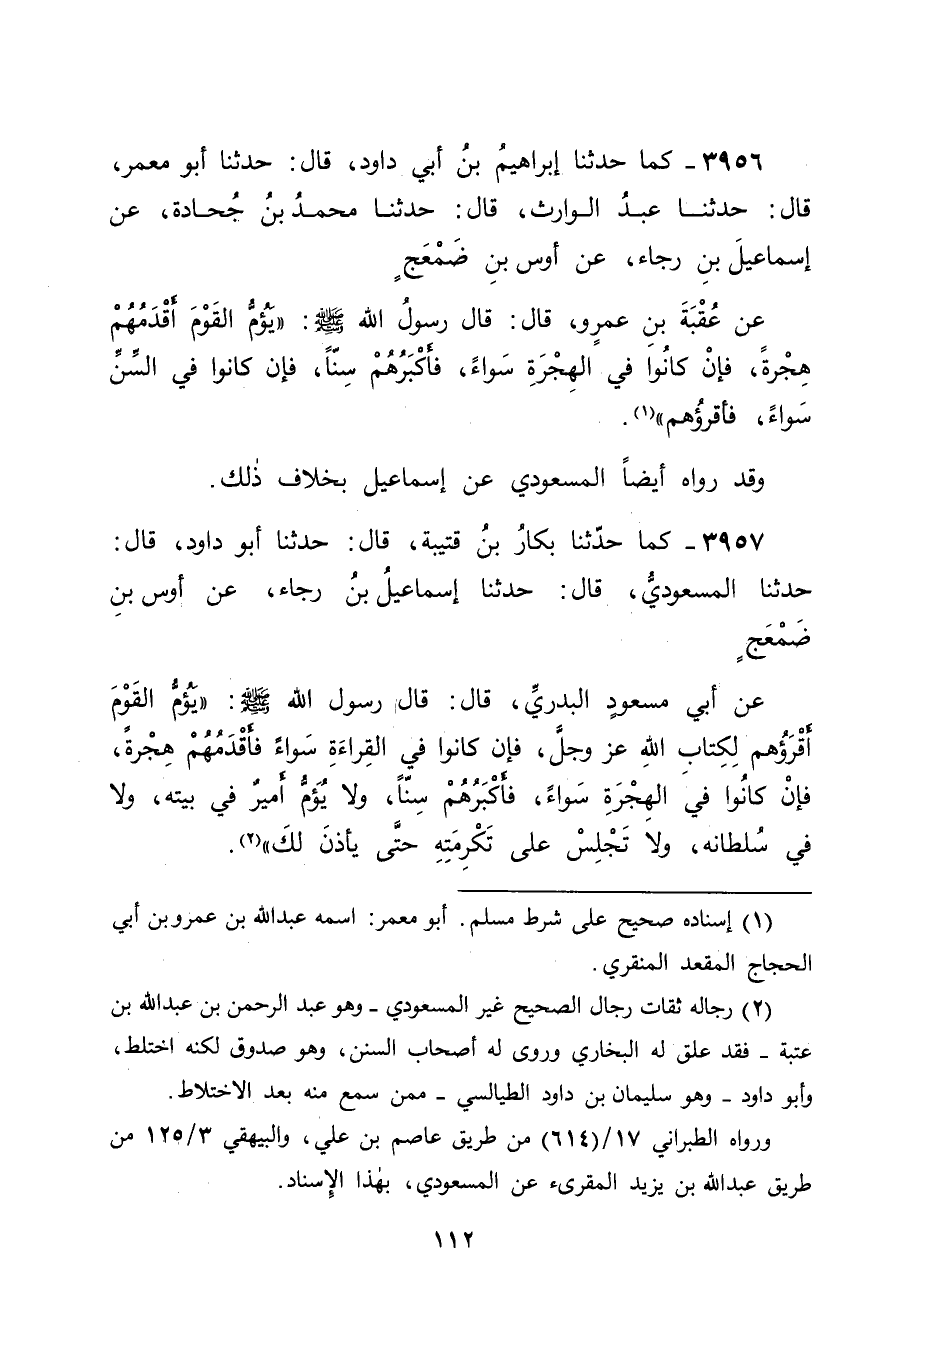 ٣٩٥٦ ـ كما حدثنا إبراهيمُ بنُ أبي داود، قال: حدثنا أبو معمر،
قال: حدثنـا عبـدُ الـوارث، قال: حدثنـا محمـدُ بنُ جُحـادة، عن
إسماعيلَ بنِ رجاء، عن أوس بنِ ضَمْعَجٍ
عن عُقْبَةَ بنِ عمرٍو، قال: قال رسولُ الله ﷺ: «يَؤُمُّ القَوْمَ أَقْدَمُهُمْ
هِجْرةً، فإنْ كانُوا في الهِجْرَةِ سَواءً، فأَكْبَرُهُمْ سِنّاً، فإن كانوا في السِّنِّ
سَواءً، فأقرؤُهم»(١).
وقد رواه أيضاً المسعودي عن إسماعيل بخلاف ذٰلك.
٣٩٥٧ ـ كما حدّثنا بكارُ بنُ قتيبة، قال: حدثنا أبو داود، قال:
حدثنا المسعوديُّ، قال: حدثنا إسماعيلُ بنُ رجاء، عن أوس بنِ
ضَمْعَجٍ
عن أبي مسعودٍ البدريِّ، قال: قال رسول الله ﷺ: «يَؤُمُّ القَوْمَ
أَقْرَؤُهم لِكِتابِ اللهِ عز وجلَّ، فإن كانوا في القِراءَةِ سَواءً فأَقْدَمُهُمْ هِجْرةً،
فإنْ كانُوا في الهِجْرَةِ سَواءً، فأَكْبَرُهُمْ سِنّاً، ولا يُؤَمُّ أَميرٌ في بيته، ولا
في سُلطانه، ولا تَجْلِسْ على تَكْرِمَتِهِ حتَّى يأذنَ لكَ»(٢).
(١) إسناده صحيح على شرط مسلم. أبو معمر: اسمه عبدالله بن عمرو بن أبي
الحجاج المقعد المنقري.
(٢) رجاله ثقات رجال الصحيح غير المسعودي ـ وهو عبد الرحمن بن عبدالله بن
عتبة ـ فقد علق له البخاري وروى له أصحاب السنن، وهو صدوق لكنه اختلط،
وأبو داود ـ وهو سليمان بن داود الطيالسي ـ ممن سمع منه بعد الاختلاط.
ورواه الطبراني ١٧/(٦١٤) من طريق عاصم بن علي، والبيهقي ١٢٥/٣ من
طريق عبدالله بن يزيد المقرىء عن المسعودي، بهٰذا الإِسناد.
١١٢